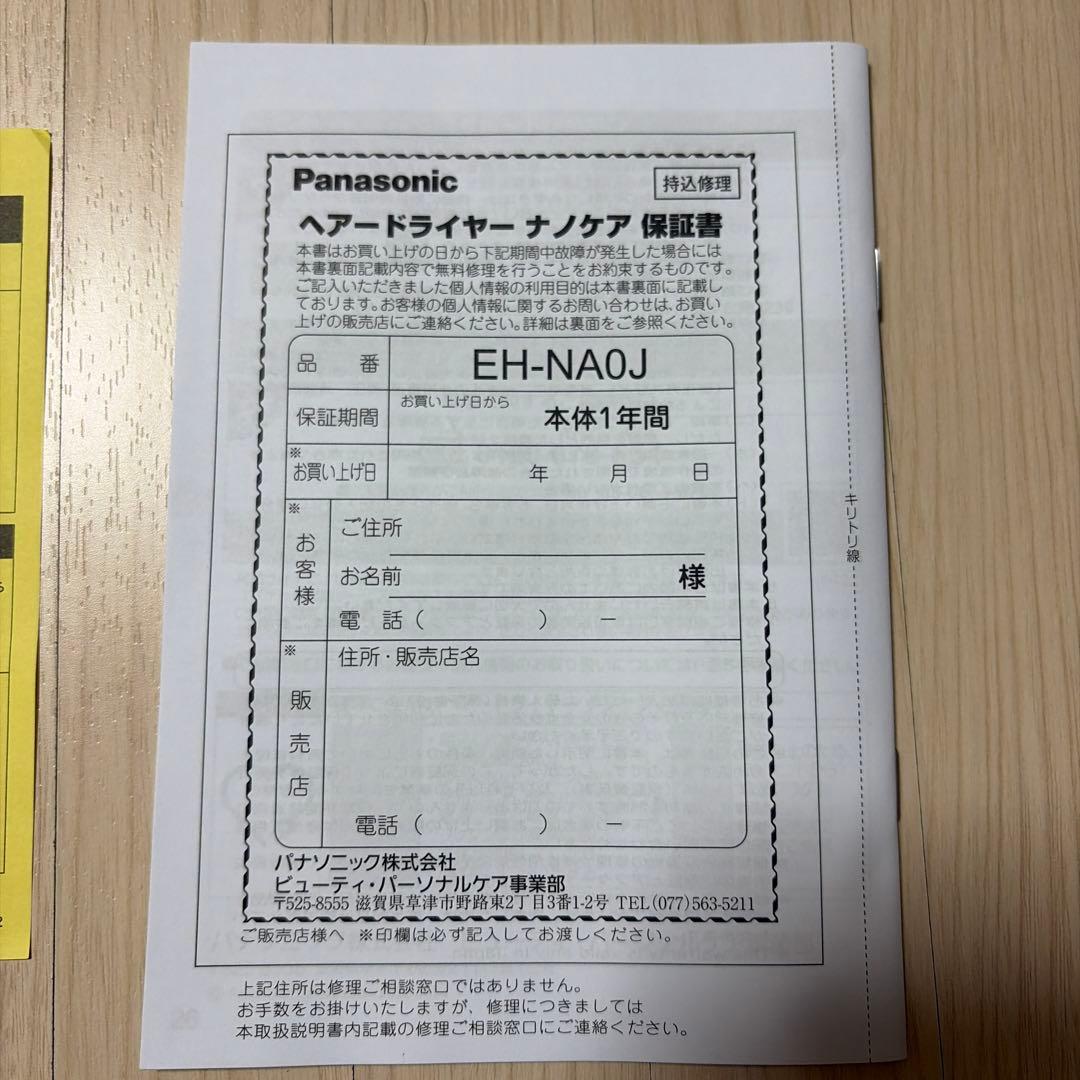 Panasonic
持込修理
ヘアードライヤー ナノケア 保証書
本書はお買い上げの日から下記期間中故障が発生した場合には
本書裏面記載内容で無料修理を行うことをお約束するものです。
ご記入いただきました個人情報の利用目的は本書裏面に記載し
ております。お客様の個人情報に関するお問い合わせは、お買い
上げの販売店にご連絡ください。詳細は裏面をご参照ください。
品 番 EH-NA0J
保証期間 お買い上げ日から 本体1年間
※
お買い上げ日 年 月 日
※
お客様
ご住所
お名前 様
電 話 ( ) ー
※
販売店
住所・販売店名
電話 ( ) ー
パナソニック株式会社
ビューティ・パーソナルケア事業部
〒525-8555 滋賀県草津市野路東2丁目3番1-2号 TEL (077) 563-5211
ご販売店様へ ※印欄は必ず記入してお渡しください。
上記住所は修理ご相談窓口ではありません。
お手数をお掛けいたしますが、修理につきましては
本取扱説明書内記載の修理ご相談窓口にご連絡ください。
キリトリ線